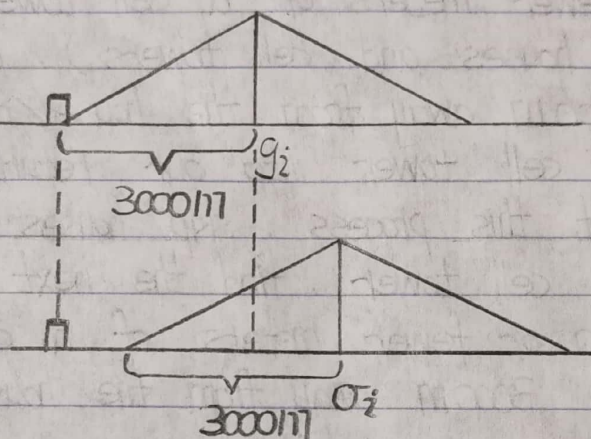 g_i
3000m
σ_i
3000m